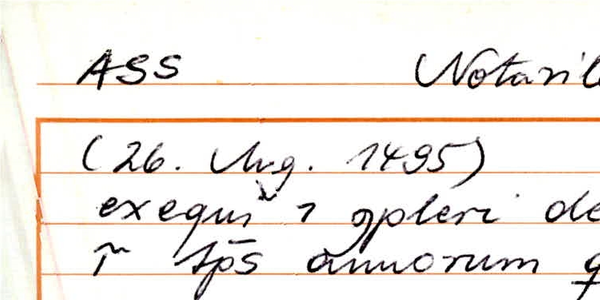 ASS Notaril
(26. Aug. 1495)
exequi ⁊ ꝯpleri de
tp̄s annorum